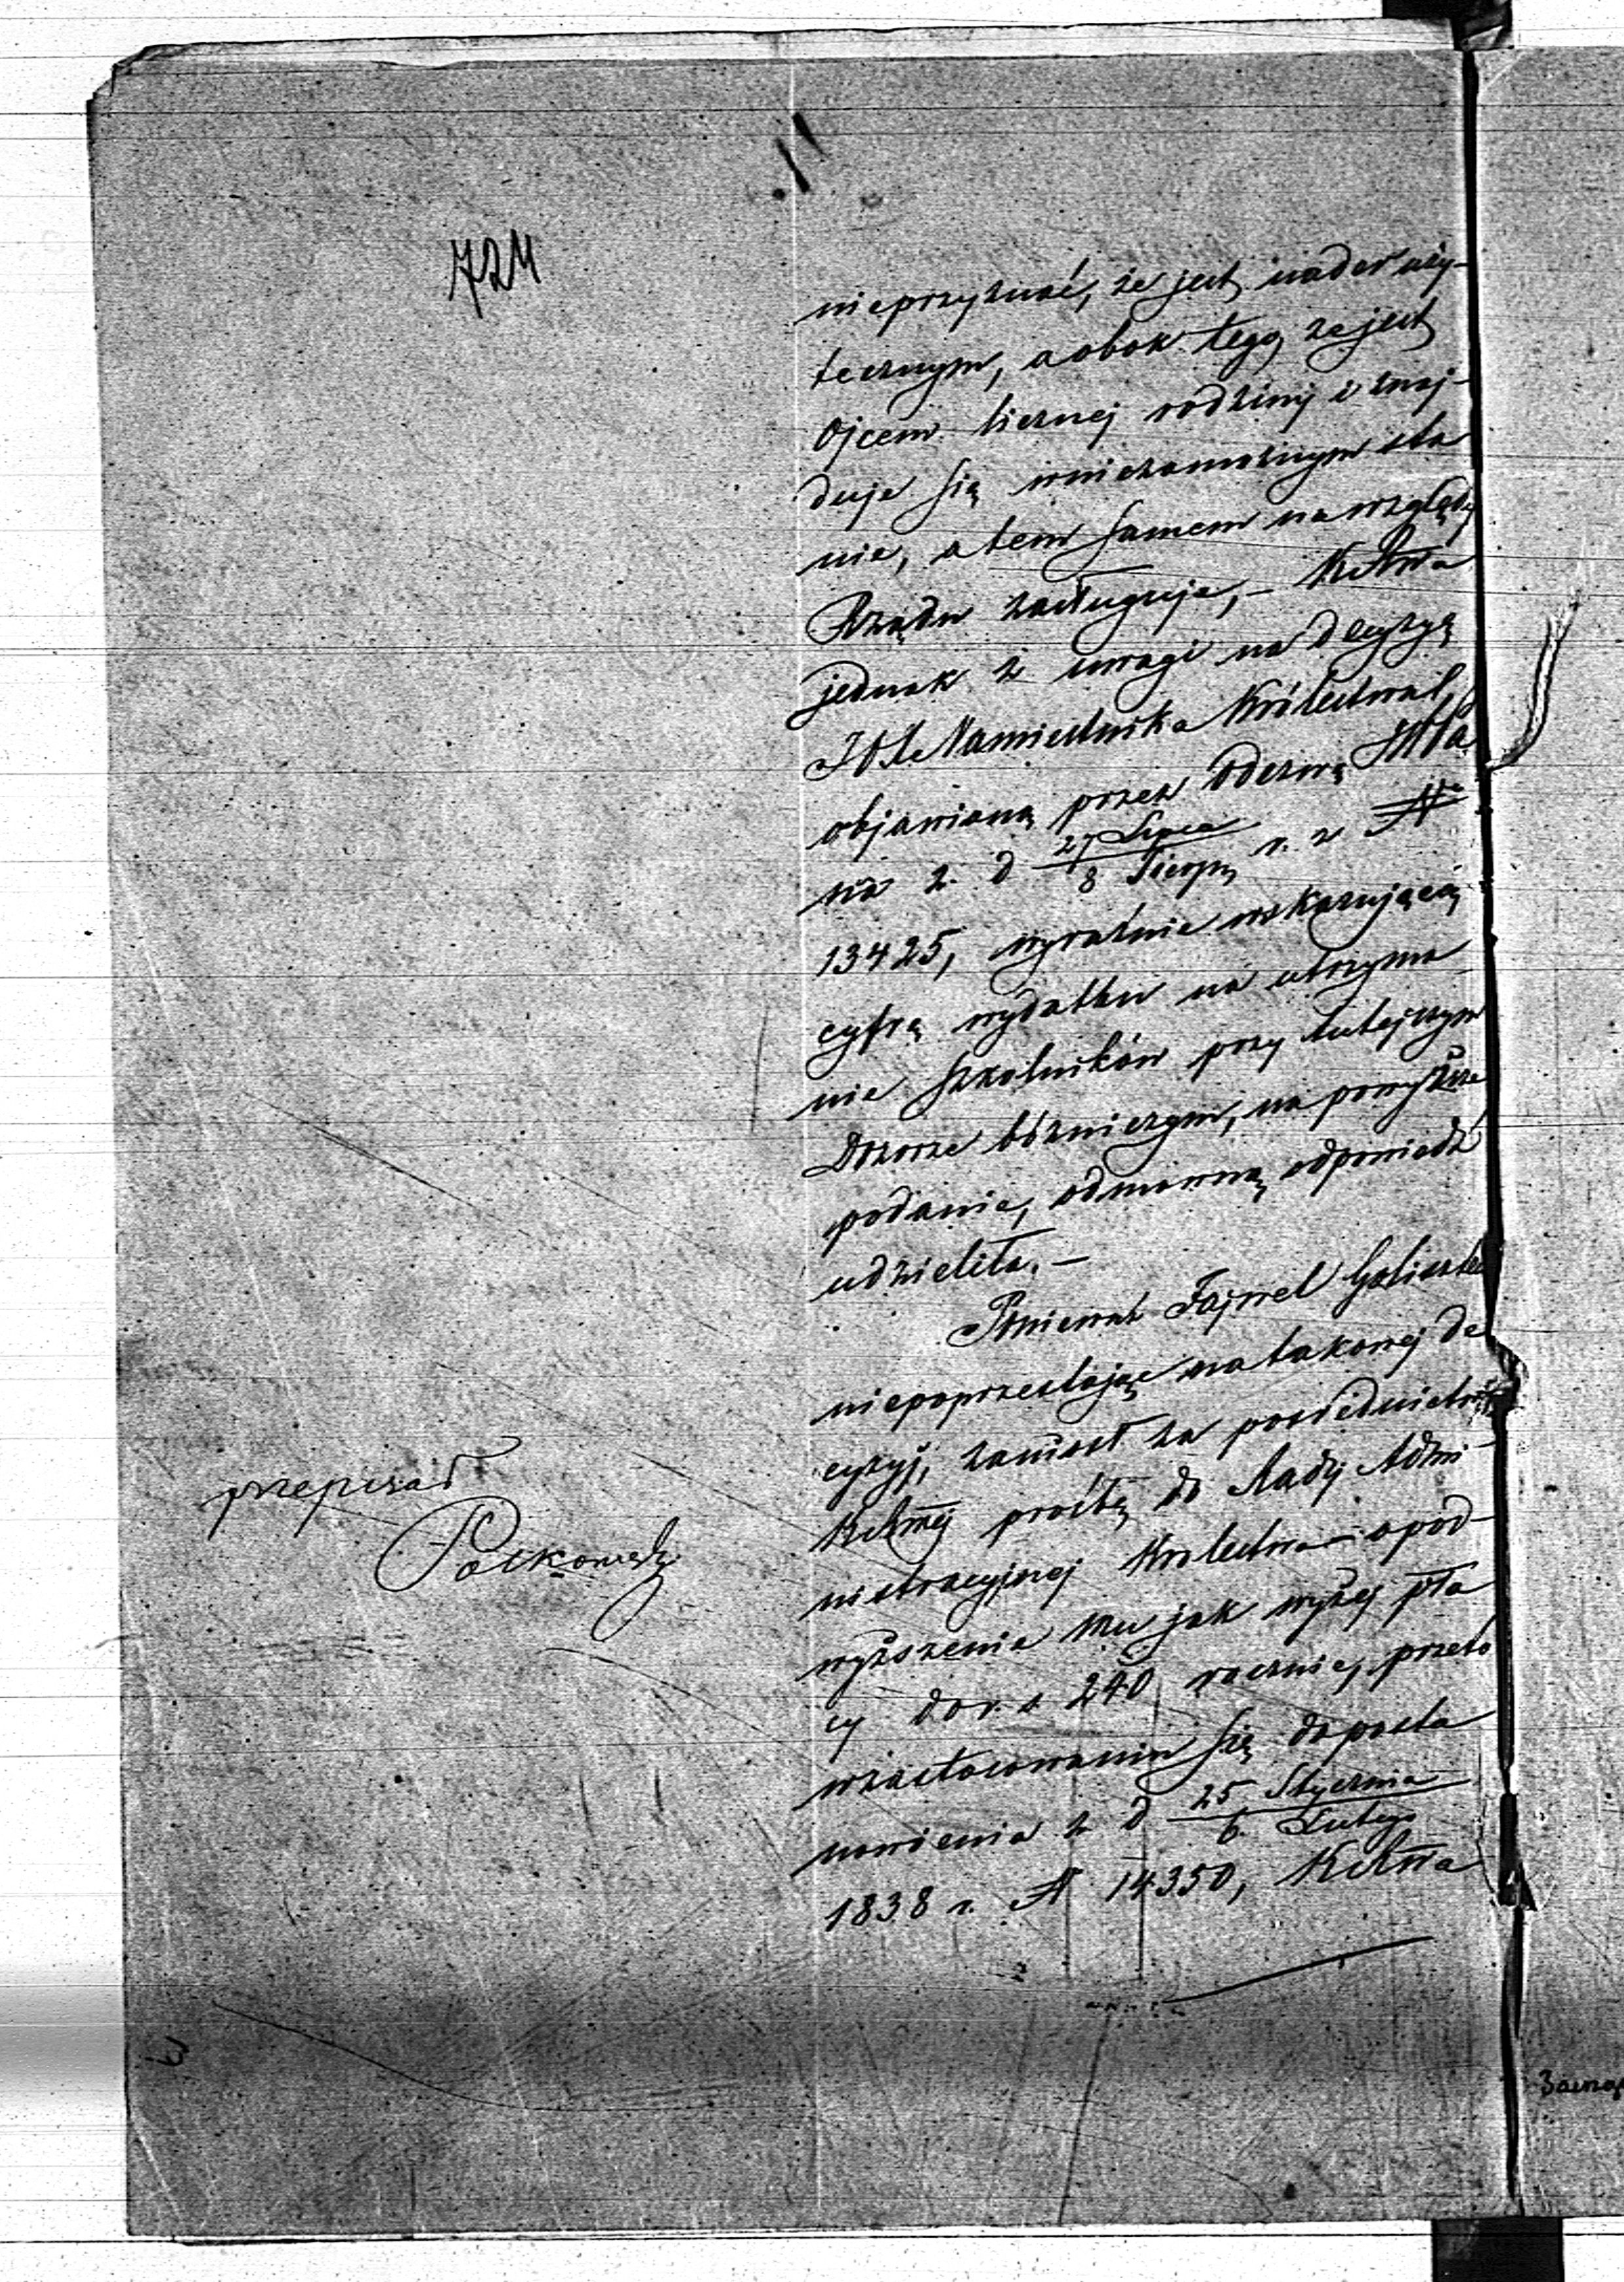 724
nieprzyznać, że jest nader uży-
tecznym, a obok tego, że jest
Ojcem licznej rodziny i znaj-
duje się w niezamożnym sta
nie, a tem samem na względy
Rządu zasługuje, – KRSWa
jednak z uwagi na decyzyą
JO Namiestnika Królestwa
objawioną przez Odezwę
na z. d 27 Lipca / 8 Sierpn r. z №
13425, wyraźnie wskazującą
cyfrę wydatku na utrzyma
nie Szkolników przy tutejszym
Dozorze bóżniczym, na powyższe
podanie, odmowną odpowiedź
udzieliła. –
Ponieważ Fajwel
niepoprzestając na takowej de
cyzyj, zaniósł za pośrednictwem
prośbę do Rady Admi-
nistracyjnej Królestwa o pod-
wyższenie mu jak wyżej pła
cy do r. s 240 rocznie, przeto
w zastosowaniu się do posta
nowienia z d 25 Stycznia / 6 Lutego
1838 r. № 14350, KRSWa
przepisał